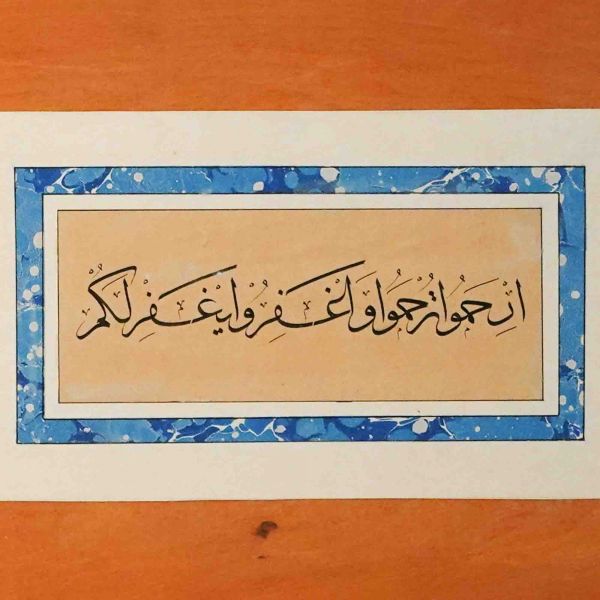 اِرْحَمُوا تُرْحَمُوا وَاغْفِرُوا يَغْفِرْ لَكُمْ